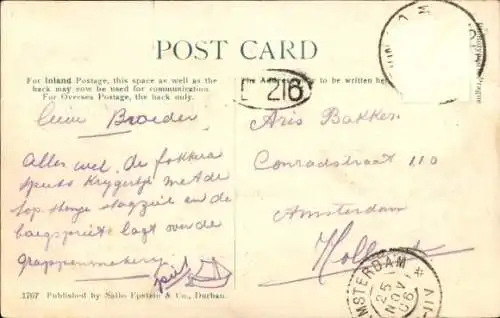 POST CARD
For Inland Postage, this space as well as the
back may now be used for communication.
For Oversea Postage, the back only.
The Address to be written here
L 216
Lieve Broeder
Alles wel. de fokkera
met de
top stenge stagzeil en de
boegspriet lagt over de
grappenmakerij
Aris Bakker
Conradstraat 110
Amsterdam
Holland
AMSTERDAM
25
NOV
06
1767 Published by Sallo Epstein & Co., Durban.